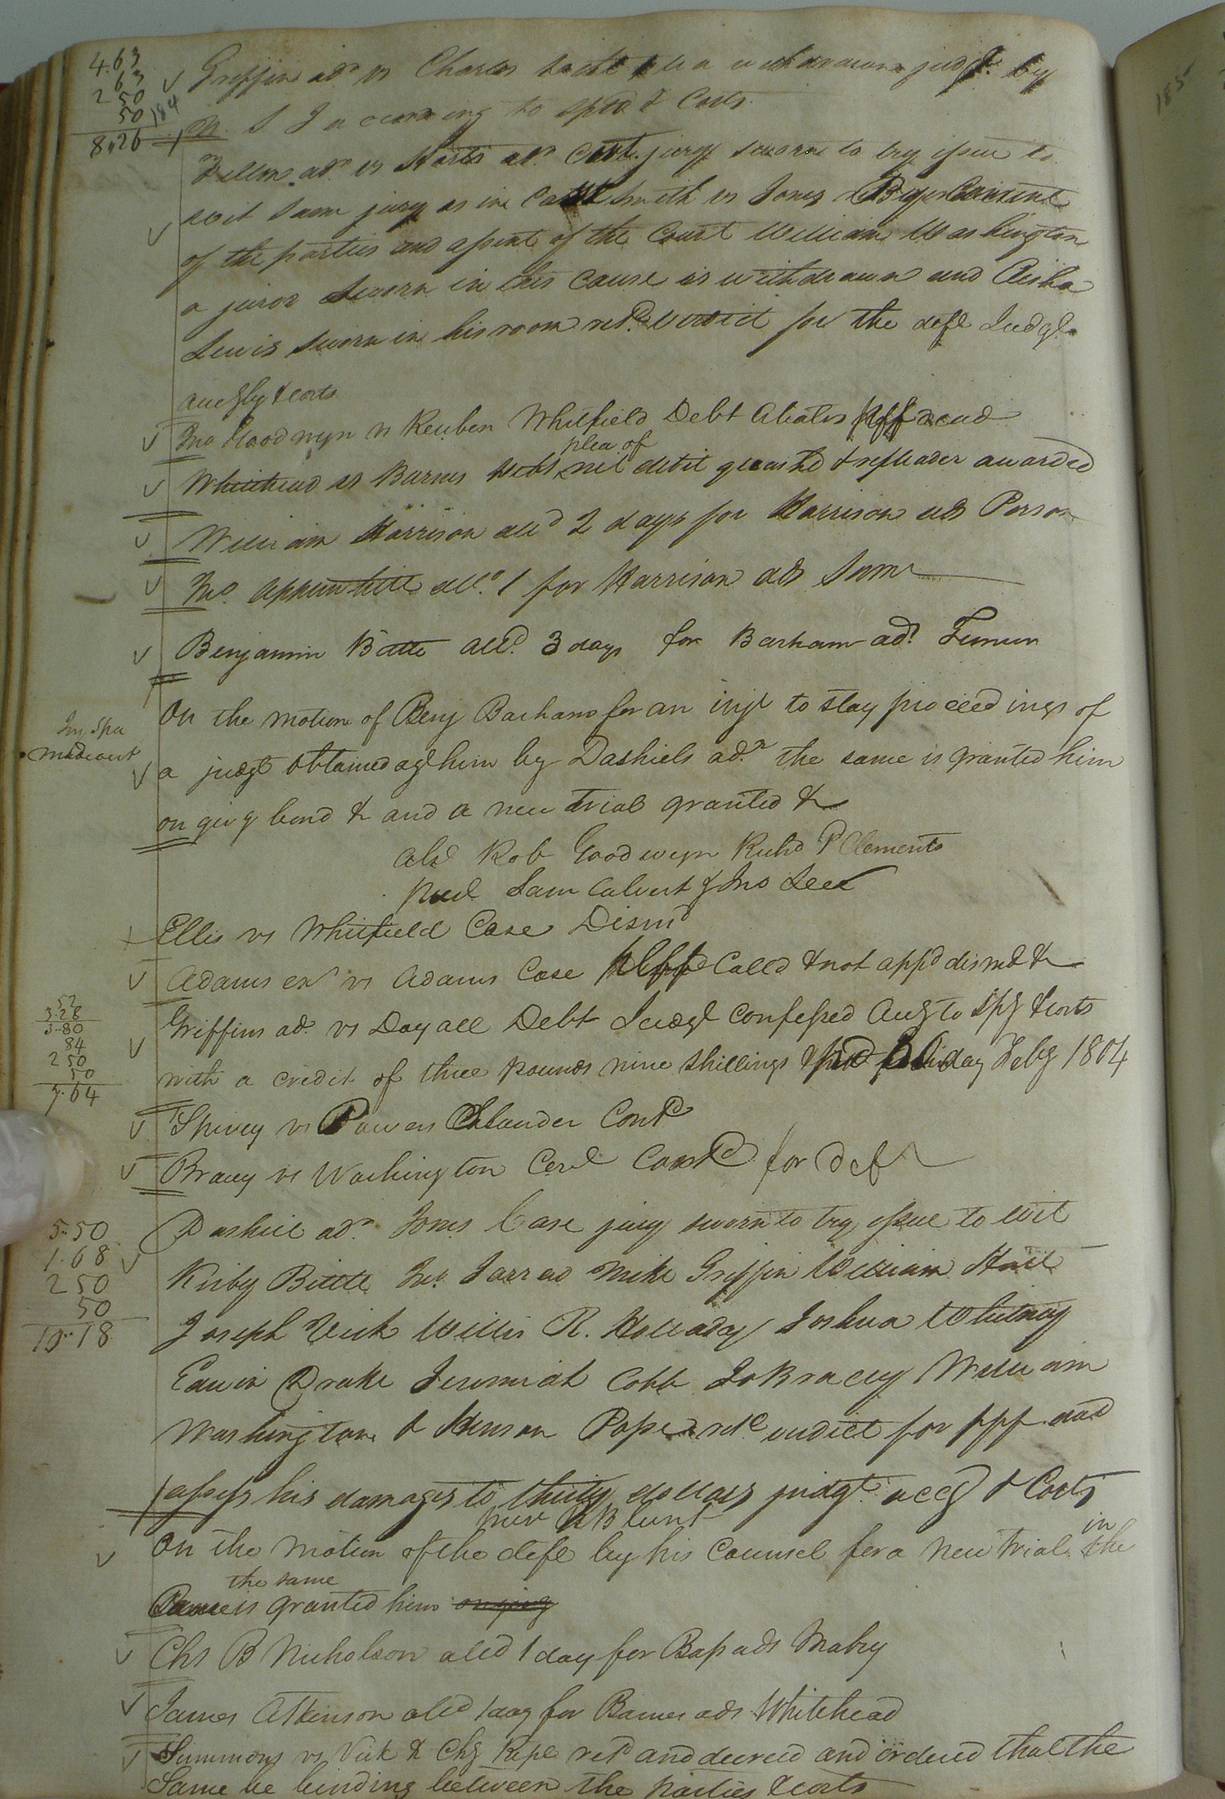 4.63
63
2 50
50
184
8.26
Griffin adr vs Charles plea withdrawn judgt by
N. S I according to specs & Costs.
adr vs Harts adr Cont. jury sworn to try issue to
wit same jury as in Case Smith vs Jones & By Consent
of the parties and assent of the Court William Washington
a juror sworn in this cause is withdrawn and Elisha
Lewis sworn in his room retd. verdict for the deft Judgt
accgly & costs
Jno Goodwyn vs Reuben Whitfield Debt Abates plff dead
Whitehead vs Barnes plea of nil debit quashd & repleader awarded
William Harrison alld 2 days for Harrison ads Person
Jno. alld. 1 for Harrison ads Same
Benjamin Bittle alld. 3 days for Barham ads
Inj Spa
Made out
On the motion of Benj Barham for an injt to stay proceedings of
a judgt obtained agt him by Dashiels adr. the same is granted him
on givg bond & and a new trial granted &
Absd Rob Goodwyn Richd P Clements
Sam Calvert & Jno
Ellis vs Whitfield Case Dismd
Adams exr vs Adams Case plff Calld & not appd dismd &
52
3.28
3.80
84
2 50
50
7.64
Griffins adr vs Day all Debt Judgt confessed Accg to spy & costs
with a credit of three pounds nine shillings & day Feby 1804
Spivey vs Powers Slander Contd
Bracy vs Washington Contd for deft
5.50
1.68
2 50
50
10.18
Dashiel adr. Jones Case jury sworn to try issue to wit
Kirby Bittle Jno. Jarrad Mike Griffin William Hart
Joseph Vick Willis R. Holladay Joshua Whitney
Edwin Drake Jeremiah Cobb Jo Bracey William
Washington & Henson Pope retd verdict for plff and
assess his damages to thirty dollars judgt accg & Costs
On the motion of the deft by his Counsel for a new trial in the
Cause the same is granted him
Chs B Nicholson alld 1 day for Bass ads Mabry
James Atkinson alld 1 day for Barnes ads Whitehead
Summons vs Vick & Chg Rept retd and decreed and ordered that the
Same be binding between the parties & costs
185